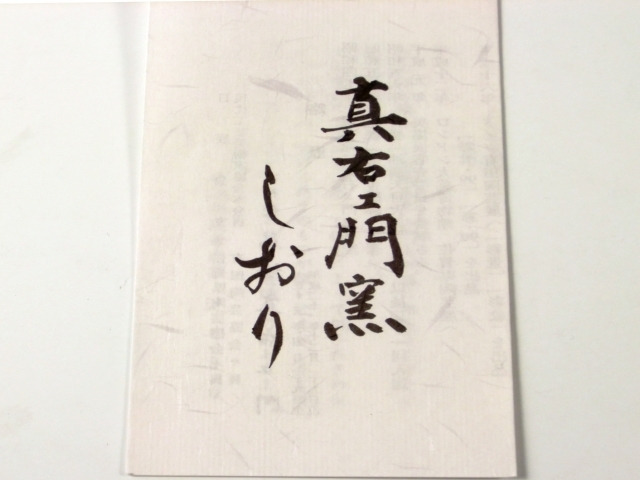 真右エ門窯
しおり